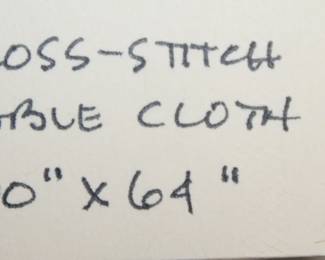 OSS-STITCH
BLE CLOTH
0" x 64"